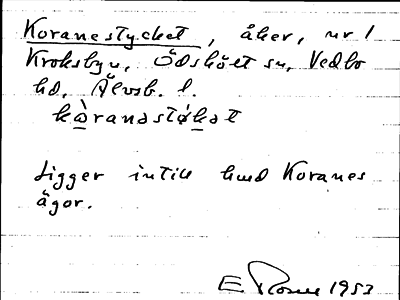 Koranestycket, åker, nr 1
Kroksbyn, Ödskölt sn, Vedbo
hd, Älvsb. l.
kòranəstýkət
Ligger intill hmd Koranes
ägor.
E 1953